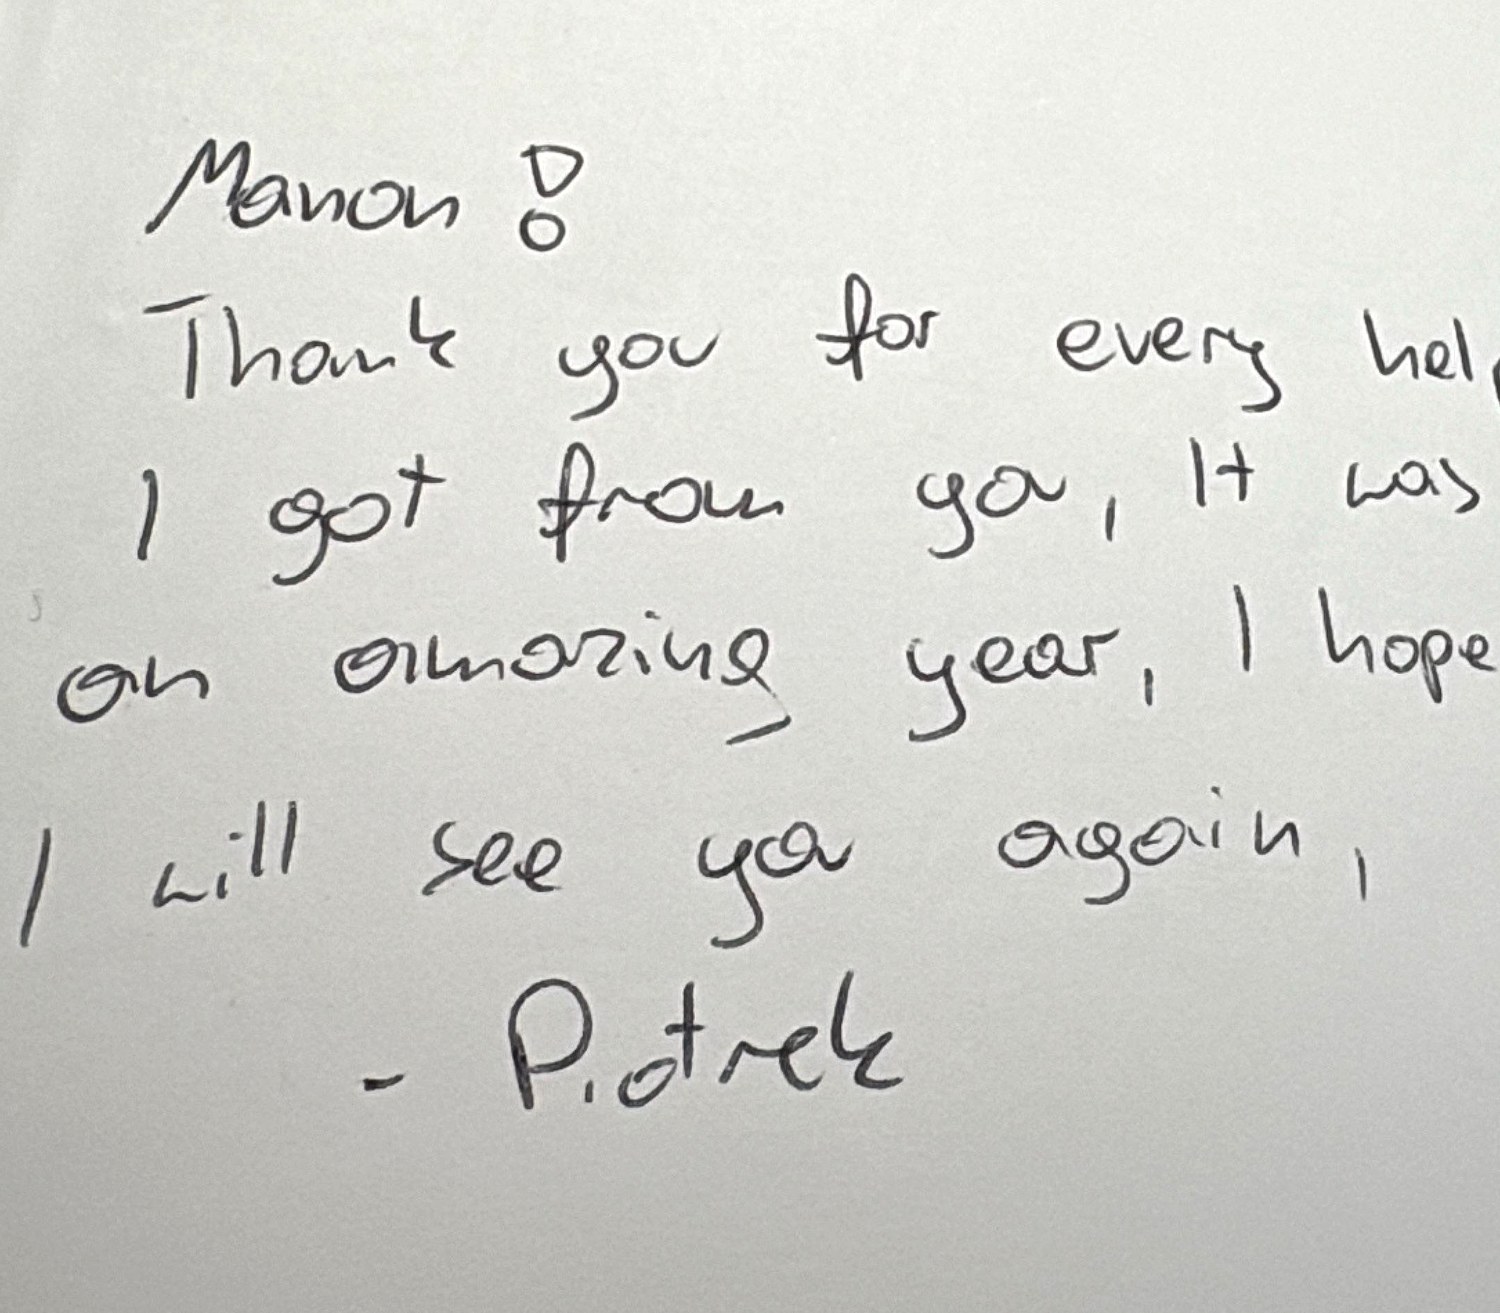 Manon!
Thank you for every help
I got from you, It was
an amazing year, I hope
I will see you again,
- Piotrek